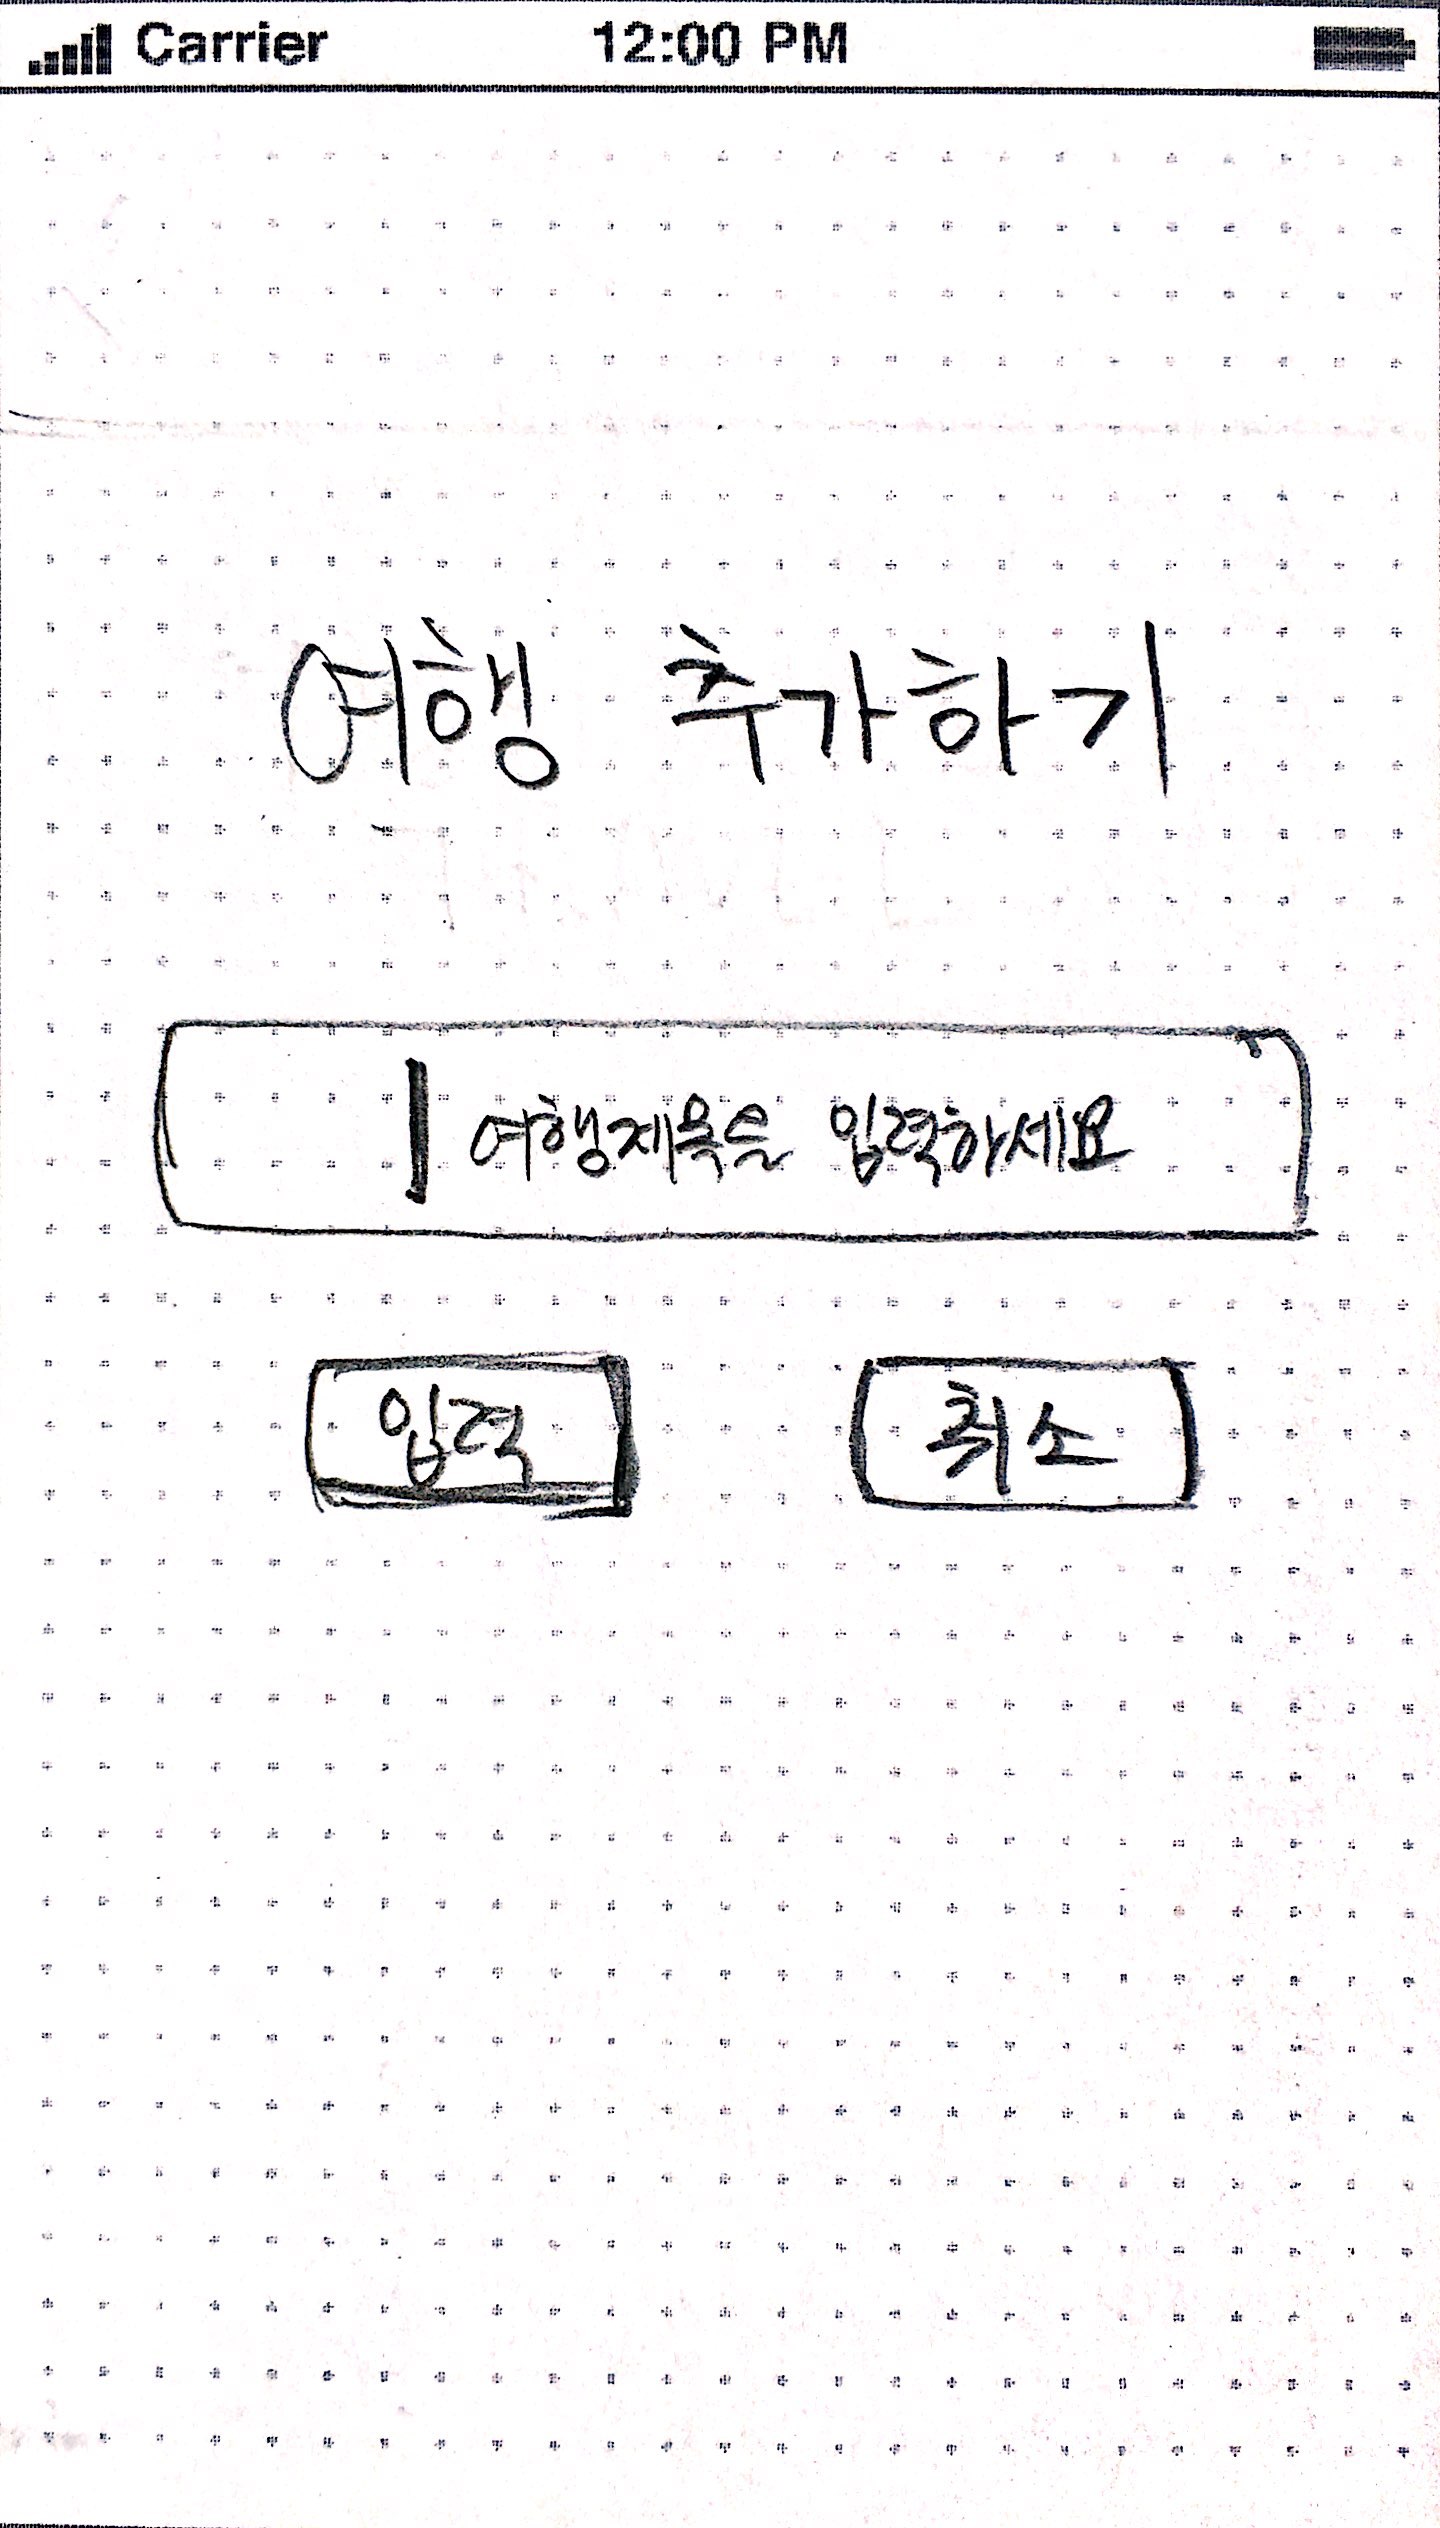 Carrier 12:00 PM
여행 추가하기
여행제목을 입력하세요
입력 취소